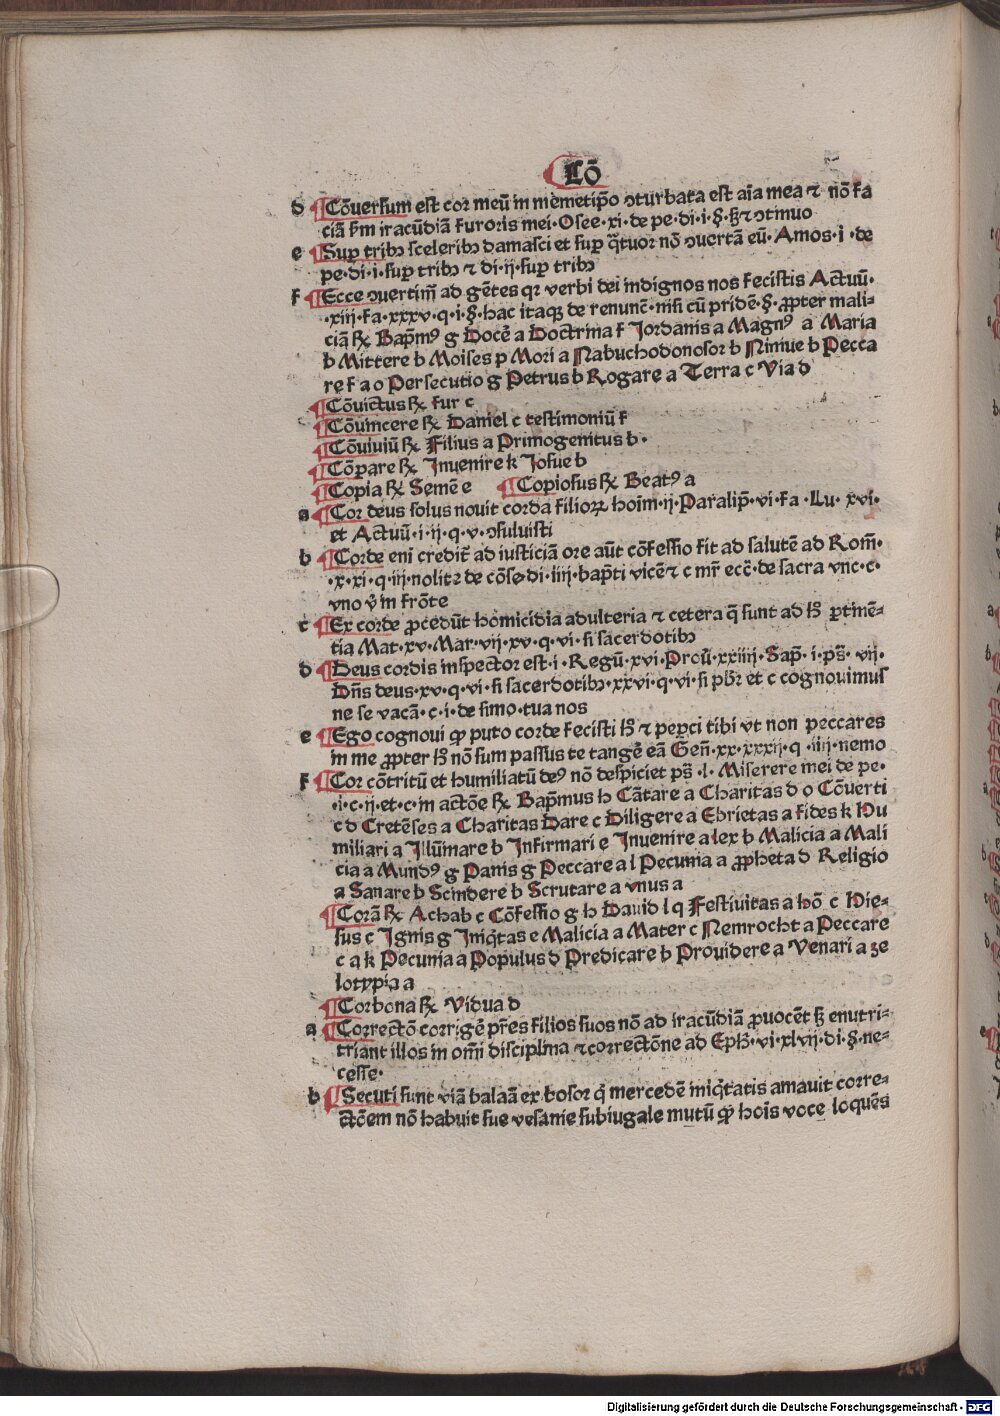 Cō
d Cōuersum est cor meū in memetip̄o ꝯturbata est aīa mea ⁊ nō fa
ciā ẜm iracūdiā furoris mei·Osee·xi·de pe·di·i·§·ꝫ⁊ ꝯtinuo
e Sup tribꝫ sceleribꝫ damasci et sup q̄tuor nō ꝯuertā eū·Amos·i·de
pe·di·i·sup tribꝫ ⁊ di·ij·sup tribꝫ
f Ecce ꝯuertim̄ ad gētes qꝛ verbi dei indignos nos fecistis Actuū·
·xiij·fa·xxxv·q·i·§·hac itaqꝫ de renunc̄·nisi cū pridē·§·ꝓpter mali-
ciā ℞ Bap̄mꝰ g Docē a Doctrina f Jordanis a Magnꝰ a Maria
b Mittere b Moises p Mori a Nabuchodonosor b Niniue b Pecca
re f a o Persecutio g Petrus b Rogare a Terra c Via d
Cōuictus ℞ fur c
Cōuincere ℞ Daniel c testimoniū f
Cōuiuiū ℞ Filius a Primogenitus b·
Cōpare ℞ Inuenire k Iosue b
Copia ℞ Semē e Copiosus ℞ Beatꝰ a
a Cor deus solus nouit corda filioꝝ hoim̄·ij·Paralip̄·vi·fa·Lu·xvi·
et Actuū·i·ij·q·v·ꝯsuluisti
b Corde eni credit̄ ad iusticiā ore aūt cōfessio fit ad salutē ad Rom̄·
·x·xi·q·iij·nolite de cōse·di·iiij·bap̄ti vicē ⁊ c mr̄ ecc̄·de sacra vnc·c·
vno v̄ in frōte
c Ex corde ꝓcedūt homicidia adulteria ⁊ cetera q̄ sunt ad h̄ ꝑtinē-
tia Mat·xv·Mar·vij·xv·q·vi·si sacerdotibꝫ
d Deus cordis inspector est·i·Regū·xvi·Prou̅·xxiiij·Sap̄·i·ps̄·vij·
Dn̄s deus·xv·q·vi·si sacerdotibꝫ·xxvi·q·vi·si pb̄r et c cognouimus
ne se vacā·c·i·de simo·tua nos
e Ego cognoui ꝙ puto corde fecisti h̄ ⁊ peꝑci tibi vt non peccares
in me ꝓpter h̄ nō sum passus te tangē eā Gen̄·xx·xxxij·q·iiij·nemo
f Cor cōtritū et humiliatū deꝰ nō despiciet ps̄·l·Miserere mei de pe·
·i·c·ij·et·c·in actōe ℞ Bap̄mus h Cātare a Charitas d o Cōuerti
c d Cretēses a Charitas Dare c Diligere a Ebrietas a fides k Hu
miliari a Illūinare b Infirmari e Inuenire a lex b Malicia a Mali
cia a Mundꝰ g Panis g Peccare a l Pecunia a ꝓpheta d Religio
a Sanare b Scindere b Scrutare a vnus a
Corā ℞ Achab c Cōfessio g h Dauid l q Festiuitas a hō c Hie-
sus c Ignis g Iniq̄tas e Malicia a Mater c Nemrocht a Peccare
c a k Pecunia a Populus d Predicare b Prouidere a Venari a ze
lotypia a
Corbona ℞ Vidua d
a Correctō corrigē p̄res filios suos nō ad iracūdiā ꝓuocēt ꝫ enutri-
triant illos in om̄i disciplina ⁊correctōne ad Eph̄·vi·xlvij·di·§·ne-
cesse·
b Secuti sunt viā balaā ex bosor q̄ mercedē iniq̄tatis amauit corre-
ctōem nō habuit sue vesanie subiugale mutū ꝙ hoīs voce loquēs
Digitalisierung gefördert durch die Deutsche Forschungsgemeinschaft - DFG